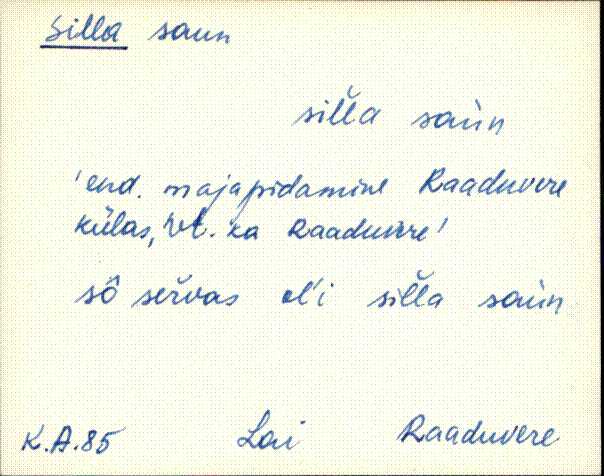 Silla saun
sil̆la saùn
'end. majapidamine Raaduvere
külas, vt. ka Raaduvere'
sȏ ser̆vas ol'i sil̆la saùn
K.A.85 Lai Raaduvere